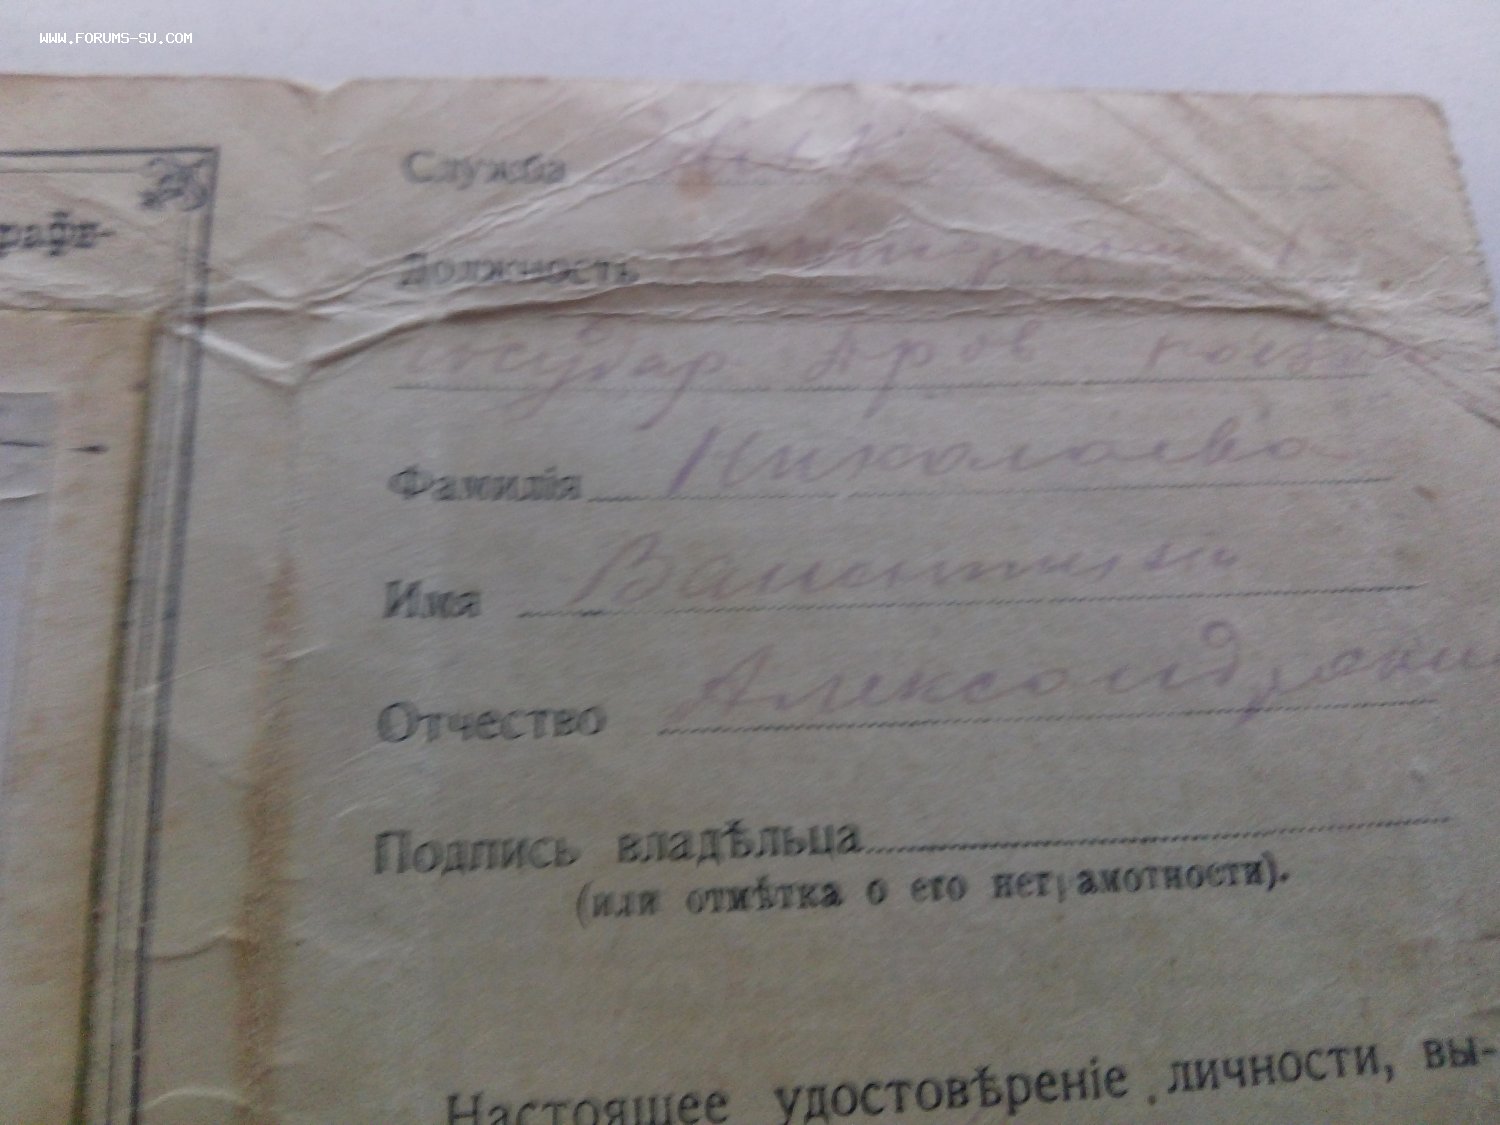 WWW.FORUMS-SU.COM
рафи-
Служба
Должность
Государ
Фамилія Николаева
Имя Валентина
Отчество
Подпись владѣльца
(или отмѣтка о его неграмотности).
Настоящее удостовѣреніе личности, вы-